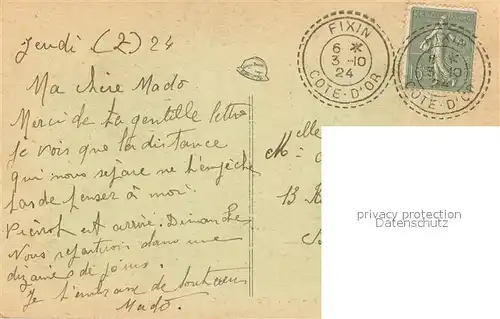 Jeudi (2) 24
Ma chère Mado
Merci de ta gentille lettre
Je vois que la distance
qui nous sépare ne t'empêche
pas de penser à moi.
Pierrot est arrivé Dimanche
Nous repartirons dans une
dizaine de jours.
Je t'embrasse de tout cœur
Mado.
FIXIN
6
3-10
24
COTE-D'OR
3-10
COTE-D'OR
Melle
13
privacy protection
Datenschutz